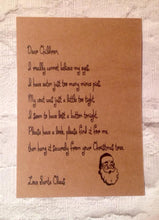 Dear Children,
I really cannot believe my eyes
I have eaten just too many mince pies
My coat was just a little too tight
I seem to have lost a button tonight
Please have a look, please find it for me
then hang it securely from your Christmas tree.
Love Santa Claus